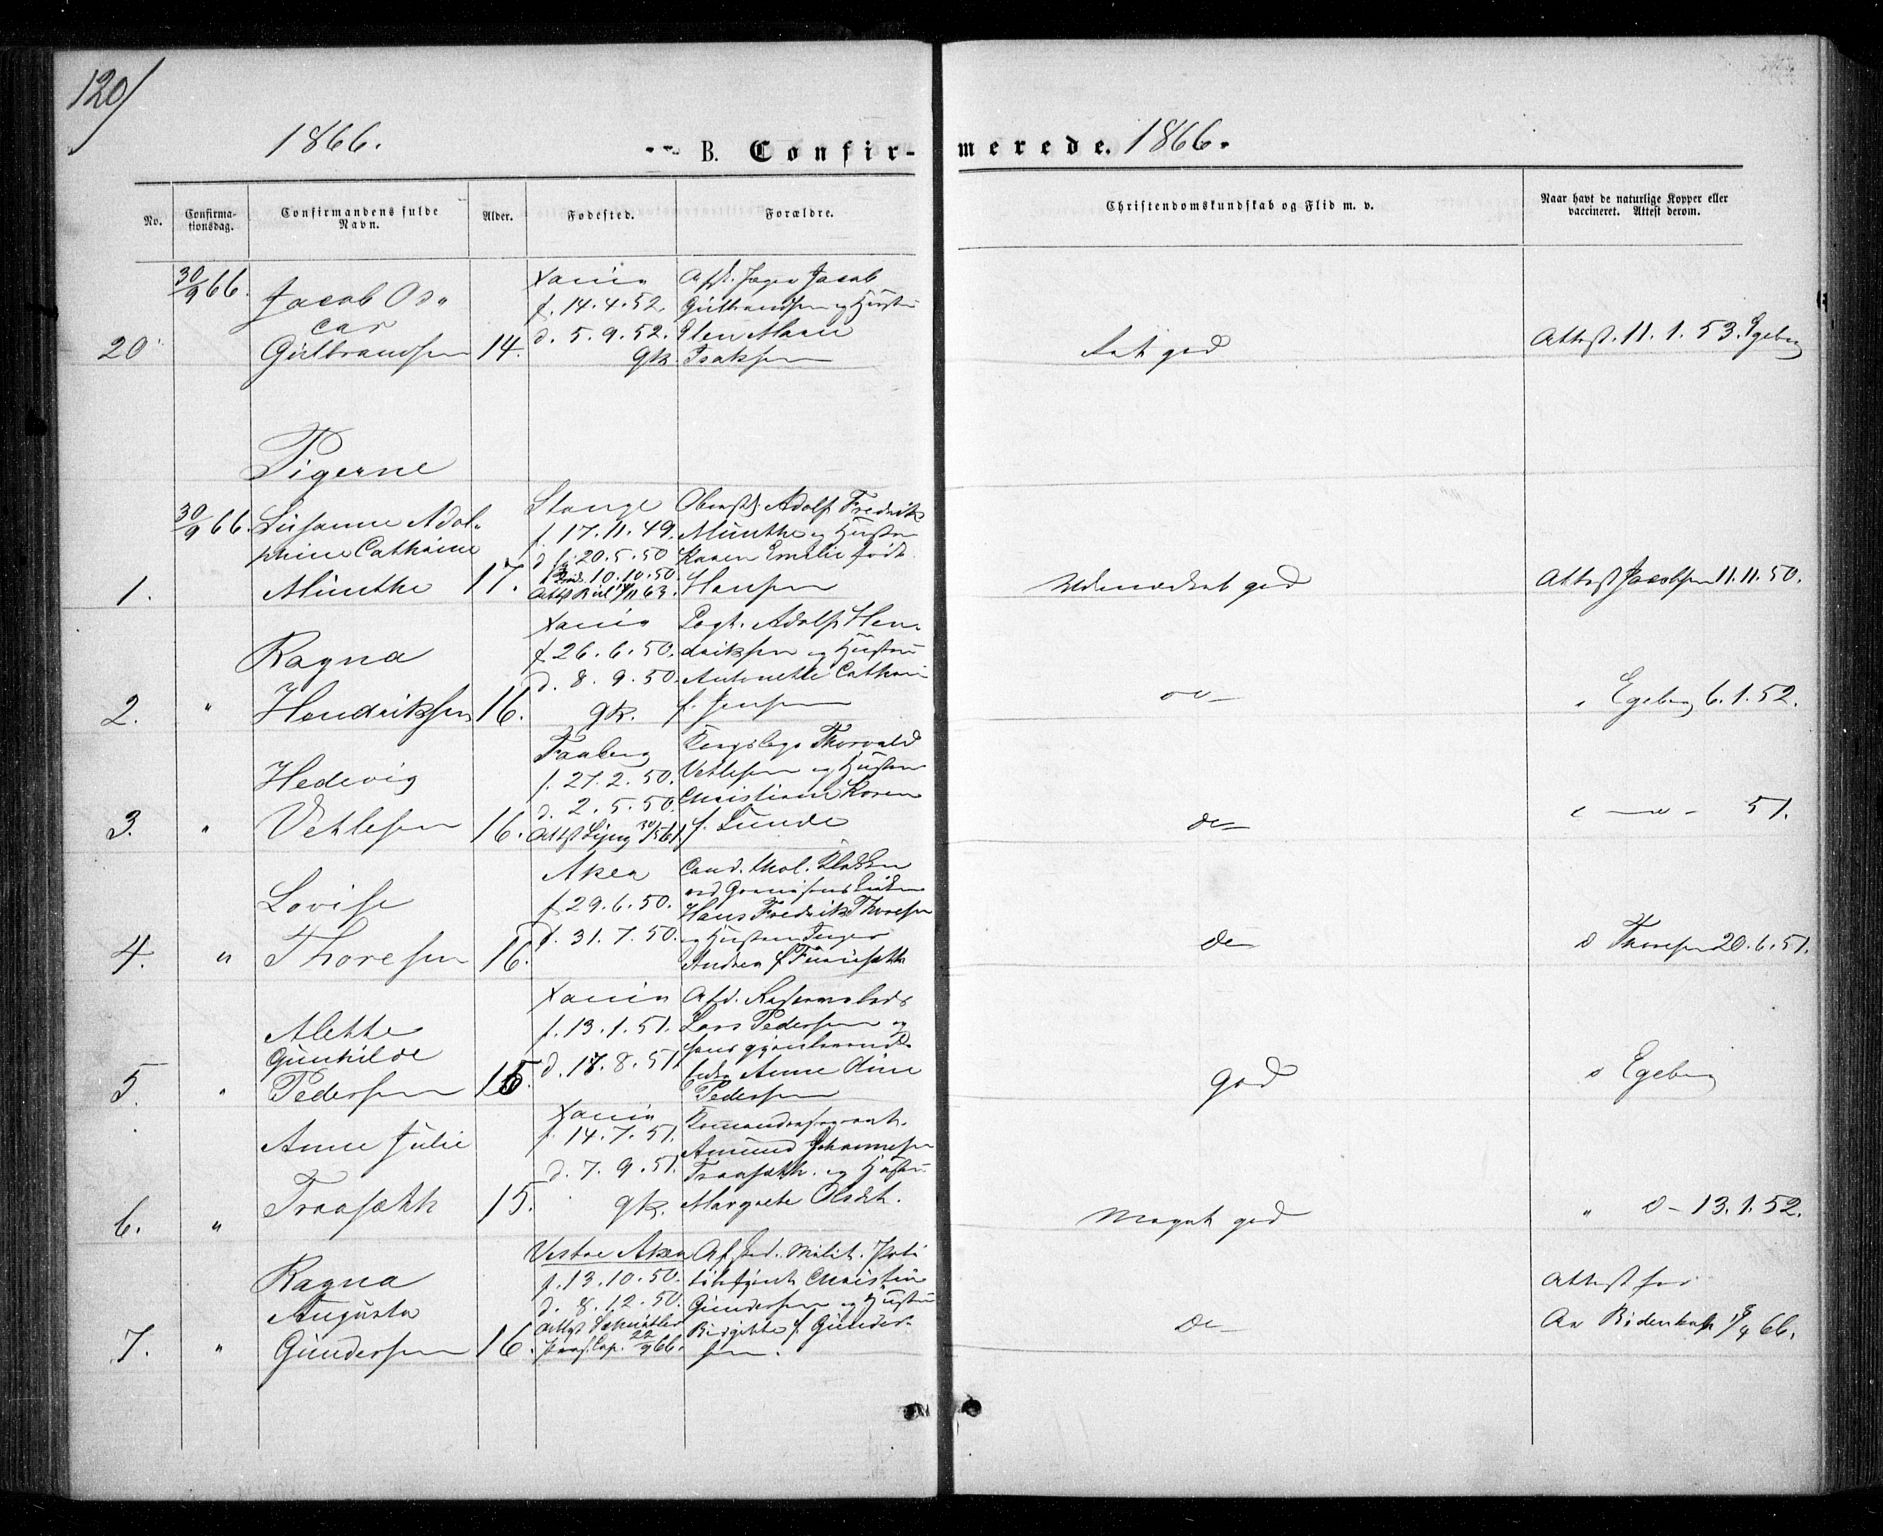 120/
1866.
B. Confir-
merede. 1866.
No.
Confirma-
tionsdag.
Confirmandens fulde
Navn.
Alder.
Fødested.
Forældre.
Christendomskundskab og Flid m. v.
Naar havt de naturlige Kopper eller
vaccineret. Attest derom.
20
30/9 66.
Jacob Os-
car
Gulbrandsen
14.
Xania
f. 14.4.52.
d. 5.9.52.
gk.
Jæger Jacob
Gulbrandsen og Hustru
Elen Marie
Isaksen
god
Attest. 11.1.53. Egeberg
Pigerne
1.
30/9 66.
Susanne Adol-
phine Cathrine
Munthe
17.
Stange
f. 17.11.49.
d. 20.5.50
10.10.50.
63.
Adolf Fredrik
Munthe og Hustru
Karen Emilie født
Hansen
Udmærket god
Attest Jacobsen 11.11.50.
2.
"
Ragna
Hendriksen
16.
Xania
f. 26.6.50.
d. 8.9.50.
gk.
Adolf Hen-
driksen og Hustru
Antonette Cathrin
f. Jensen
do
" Egeberg 6.1.52.
3.
"
Hedevig
Vetlesen
16.
Faaberg
f. 21.2.50.
d. 2.5.50.
Attst 30/5 61.
Thorvald
Vetlesen og Hustru
Christiane Karen
f. Lunde
do
51.
4.
"
Lovise
Thoresen
16.
Aker
f. 29.6.50.
d. 31.7.50.
Cand. theol. Klokker
ved Garnisonskirken
Hans Fredrik Thoresen
og Hustru Inger
Andrea f.
do
d Thoresen 20.6.51.
5.
"
Alette
Gunhilde
Pedersen
15
Xania
f. 13.1.51.
d. 17.8.51.
Lars Pedersen og
Anne Oline
Pedersen
god
d Egeberg
6.
"
Anne Julie
Traasæth
15.
Xania
f. 14.7.51.
d. 7.9.51.
gk.
Amund Johannesen
Traasæth. og Hustru
Margrete Olsdt.
Meget god
" d - 13.1.52.
7.
"
Ragna
Augusta
Gundersen
16.
Vestre Aker
f. 13.10.50.
d. 8.12.50.
Attst
22/9 66.
Christian
Gundersen og Hustru
Birgitte f. Gunder-
sen.
do
Attest for
66.